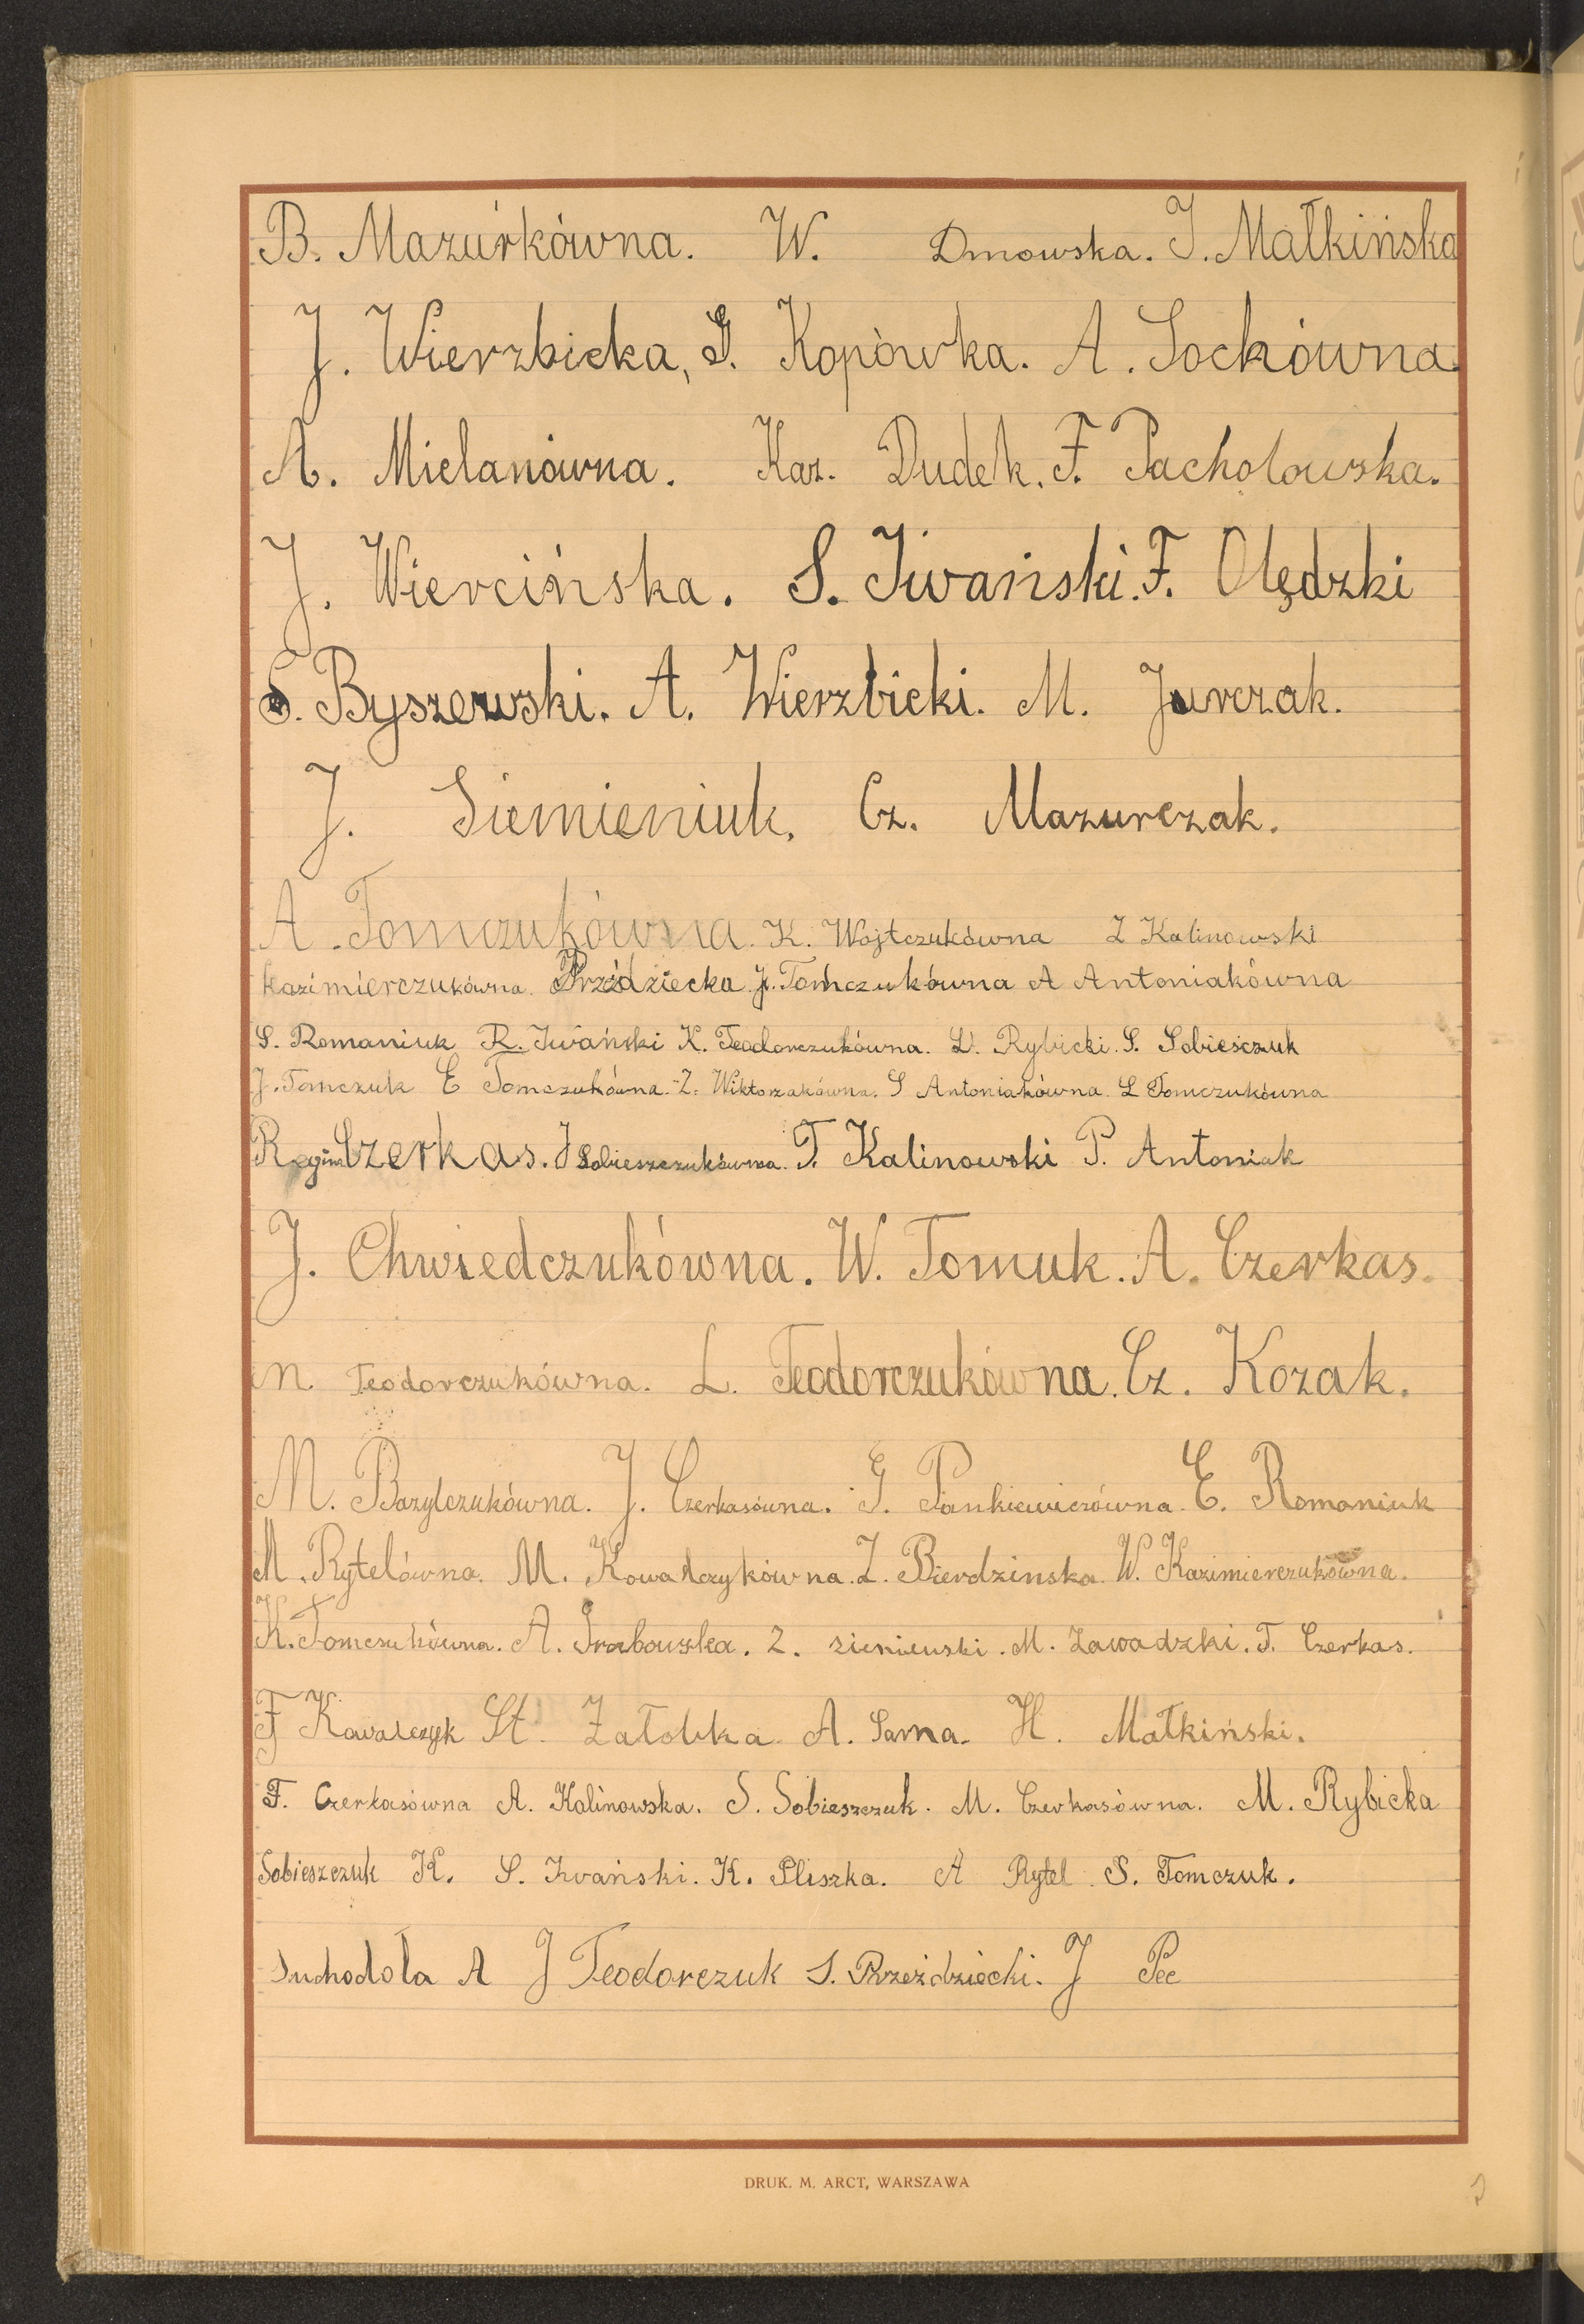 B. Mazurkówna. W. Dmowska. J. Małkińska
J. Wierzbicka, G. Kopówka. A. Sochówna
A. Mielanówna. Kaz. Dudek. F. Pacholowska.
J. Wiercińska. S. Iwański. F. Olędzki
S. Byszewski. A. Wierzbicki. M. Jurczak.
J. Siemieniuk. Cz. Mazurczak.
A. Tomczukówna. K. Wojtczukówna Z Kalinowski
Kazimierczukówna. Przeździecka J. Tomczukówna A Antoniakówna
S. Romaniuk R. Iwański K. Teodorczukówna. L. Rybicki. S. Sobieśczuk
J. Tomczuk E Tomczukówna. Z. Wiktorzakówna. S Antoniakówna. L Tomczukówna
Regina Czerkas. J Sobieszczukówna. T. Kalinowski P. Antoniak
J. Chwiedczukówna. W. Tomuk. A. Czerkas.
N. Teodorczukówna. L. Teodorczukówna. Cz. Kozak.
M. Bazylczukówna. J. Czerkasówna. G. Pankiewiczówna. E. Romaniuk
M. Rytelówna. M. Kowalczykówna. Z. Bierdzinska. W. Kazimierczukówna.
K. Tomczukówna. A. Grabowska. Z. Sieniewski. M. Zawadzki. T. Czerkas.
F Kowalczyk St. Załobka A. Sarna. H. Małkiński.
F. Czerkasówna A. Kalinowska. S. Sobieszczuk. M. Czerkasówna. M. Rybicka
Sobieszczuk K. S. Iwański. K. Pliszka. A Rytel S. Tomczuk.
Suchodoła A J Teodorczuk S. Przeździecki. J Pec
DRUK. M. ARCT, WARSZAWA